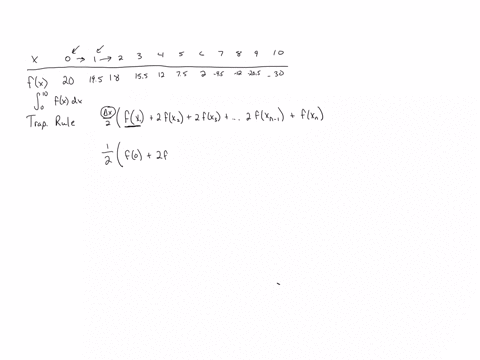 x 0 → 1 → 2 3 4 5 6 7 8 9 10
f(x) 20 19.5 18 15.5 12 7.5 2 -4.5 -12 -20.5 -30
∫₀¹⁰ f(x) dx
Trap. Rule Δx/2 ( f(x₁) + 2f(x₂) + 2f(x₃) + ... 2f(xₙ₋₁) + f(xₙ) )
1/2 ( f(0) + 2f